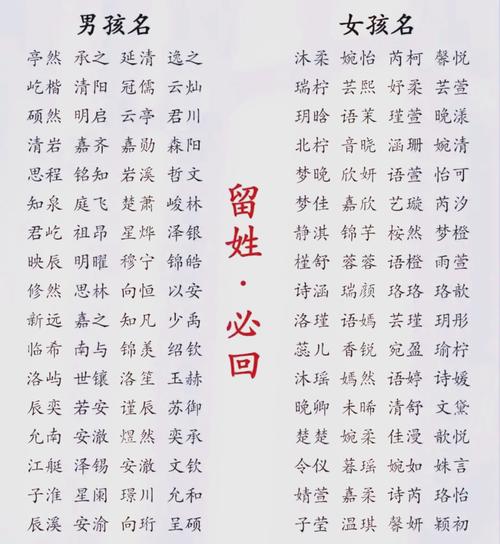 男孩名
亭然 承之 延清 逸之
屹楷 清阳 冠儒 云灿
硕然 明启 云亭 君川
清岩 嘉齐 嘉勋 森阳
思程 铭知 岩溪 哲文
知泉 庭飞 楚萧 峻林
君屹 祖昂 星烨 泽银
映辰 明曜 穆宁 锦皓
修然 思林 向恒 以安
新远 嘉之 知凡 少禹
临希 南与 锦羡 绍钦
洛屿 世镶 洛笙 玉赫
辰奕 若安 谨辰 苏御
允南 安澈 煜然 奕承
江艇 泽锡 安澈 文钦
子淮 星阑 璟川 允和
辰溪 安渝 向珩 呈硕
留姓·必回
女孩名
沐柔 婉怡 芮柯 馨悦
瑞柠 芸熙 妤柔 芸萱
玥晗 语茉 瑾萱 晚漾
北柠 音晓 涵珊 婉清
梦晚 欣妍 语萱 怡可
梦佳 嘉欣 艺璇 芮汐
静淇 锦芋 桉然 梦橙
槿舒 蓉蓉 语橙 雨萱
诗涵 瑞颜 珞珞 珞歆
洛瑾 语嫣 芸瑾 玥彤
蕊儿 香锐 宛盈 瑜柠
沐瑶 嫣然 语婷 诗媛
晚卿 未晞 清舒 文黛
楚楚 婉柔 佳漫 歆悦
令仪 暮瑶 婉如 姝言
婧萱 嘉柔 诗芮 珞怡
子莹 温琪 馨妍 颖初